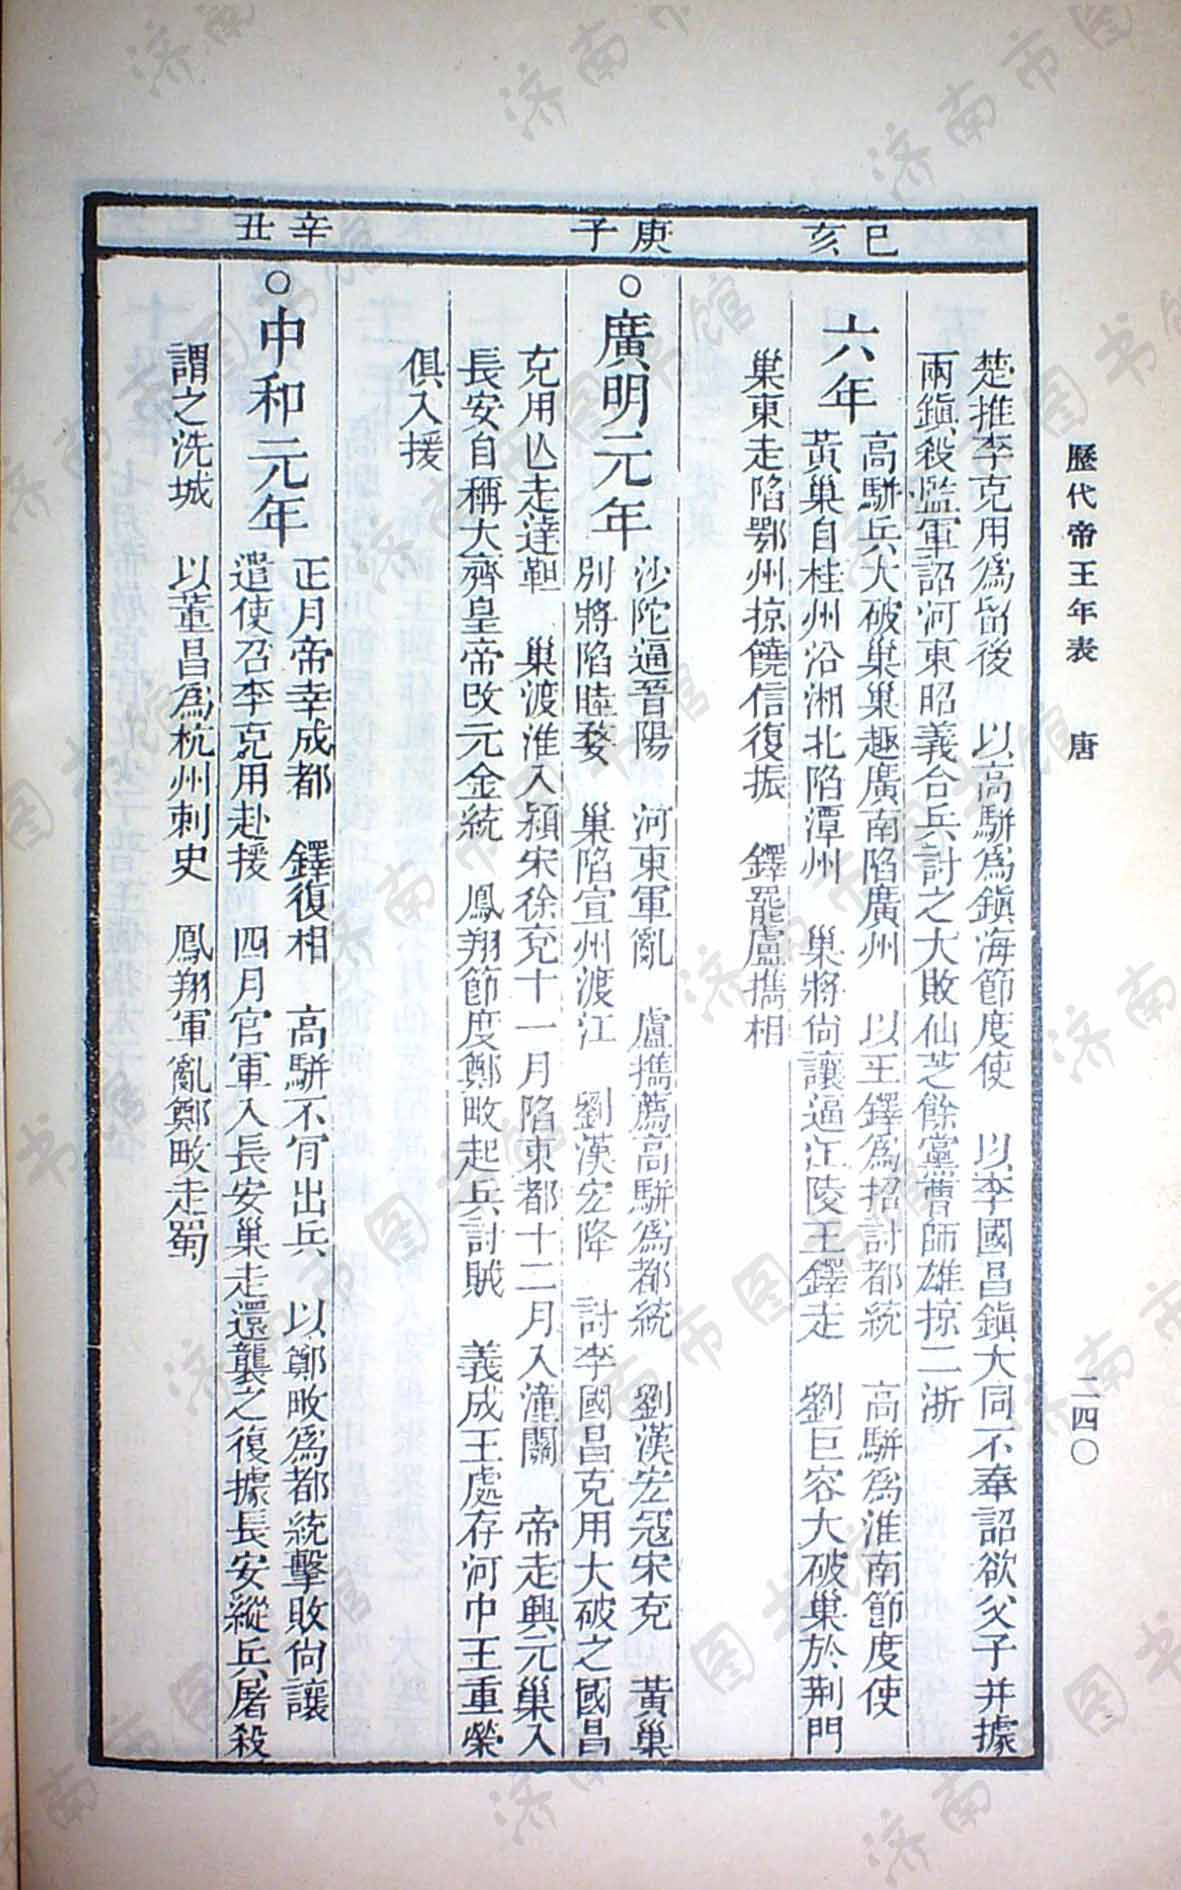 歷代帝王年表　唐　二四〇
己亥
庚子
辛丑
楚推李克用爲留後　以高騈爲鎭海節度使　以李國昌鎭大同不奉詔欲父子并據
兩鎭殺監軍詔河東昭義合兵討之大敗仙芝餘黨曹師雄掠二浙
六年
高騈兵大破巢巢趣廣南陷廣州　以王鐸爲招討都統　高騈爲淮南節度使
黃巢自桂州沿湘北陷潭州　巢將尙讓逼江陵王鐸走　劉巨容大破巢於荆門
巢東走陷鄂州掠饒信復振　鐸罷盧攜相
○廣明元年
沙陀逼晉陽　河東軍亂　盧攜薦高騈爲都統　劉漢宏寇宋兗　黃巢
別將陷睦婺　巢陷宣州渡江　劉漢宏降　討李國昌克用大破之國昌
克用亾走達靼　巢渡淮入潁宋徐兗十一月陷東都十二月入潼關　帝走興元巢入
長安自稱大齊皇帝改元金統　鳳翔節度鄭畋起兵討賊　義成王處存河中王重榮
俱入援
○中和元年
正月帝幸成都　鐸復相　高騈不肎出兵　以鄭畋爲都統擊敗尙讓
遣使召李克用赴援　四月官軍入長安巢走還襲之復據長安縱兵屠殺
謂之洗城　以董昌爲杭州刺史　鳳翔軍亂鄭畋走蜀
济南市图书馆